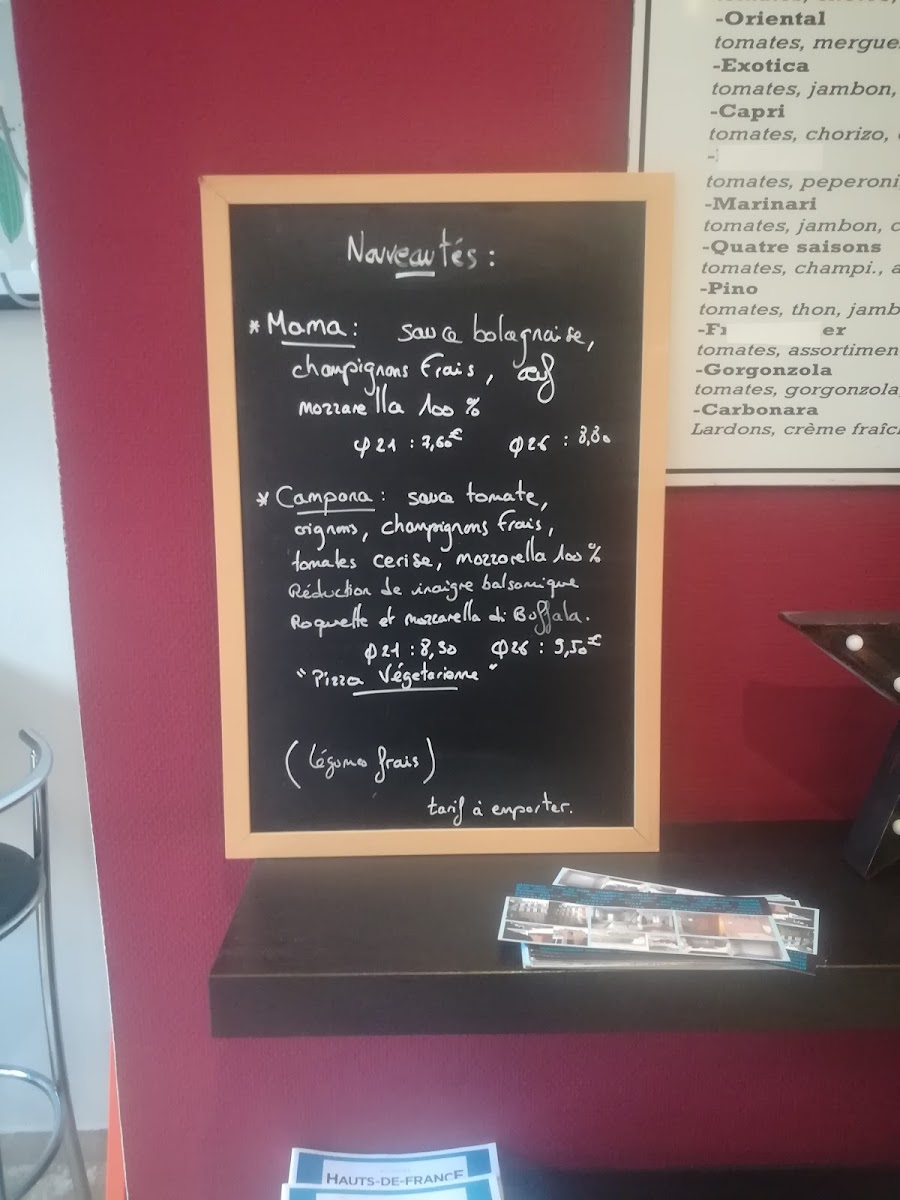 Nouveautés :
* Mama : sauce bolognaise,
champignons frais, œuf
mozzarella 100 %
φ21 : 7,60€ φ26 : 8,80
* Campana : sauce tomate,
oignons, champignons frais,
tomates cerise, mozzarella 100 %
Réduction de vinaigre balsamique
Roquette et mozzarella di Buffala.
φ21 : 8,30 φ26 : 9,50€
"Pizza Végétarienne"
(légumes frais)
tarif à emporter.
-Oriental
tomates, mergue
-Exotica
tomates, jambon,
-Capri
tomates, chorizo,
tomates, peperoni
-Marinari
tomates, jambon, c
-Quatre saisons
tomates, champi., a
-Pino
tomates, thon, jamb
er
tomates, assortimen
-Gorgonzola
tomates, gorgonzola,
-Carbonara
Lardons, crème fraîc
HAUTS-DE-FRANCE